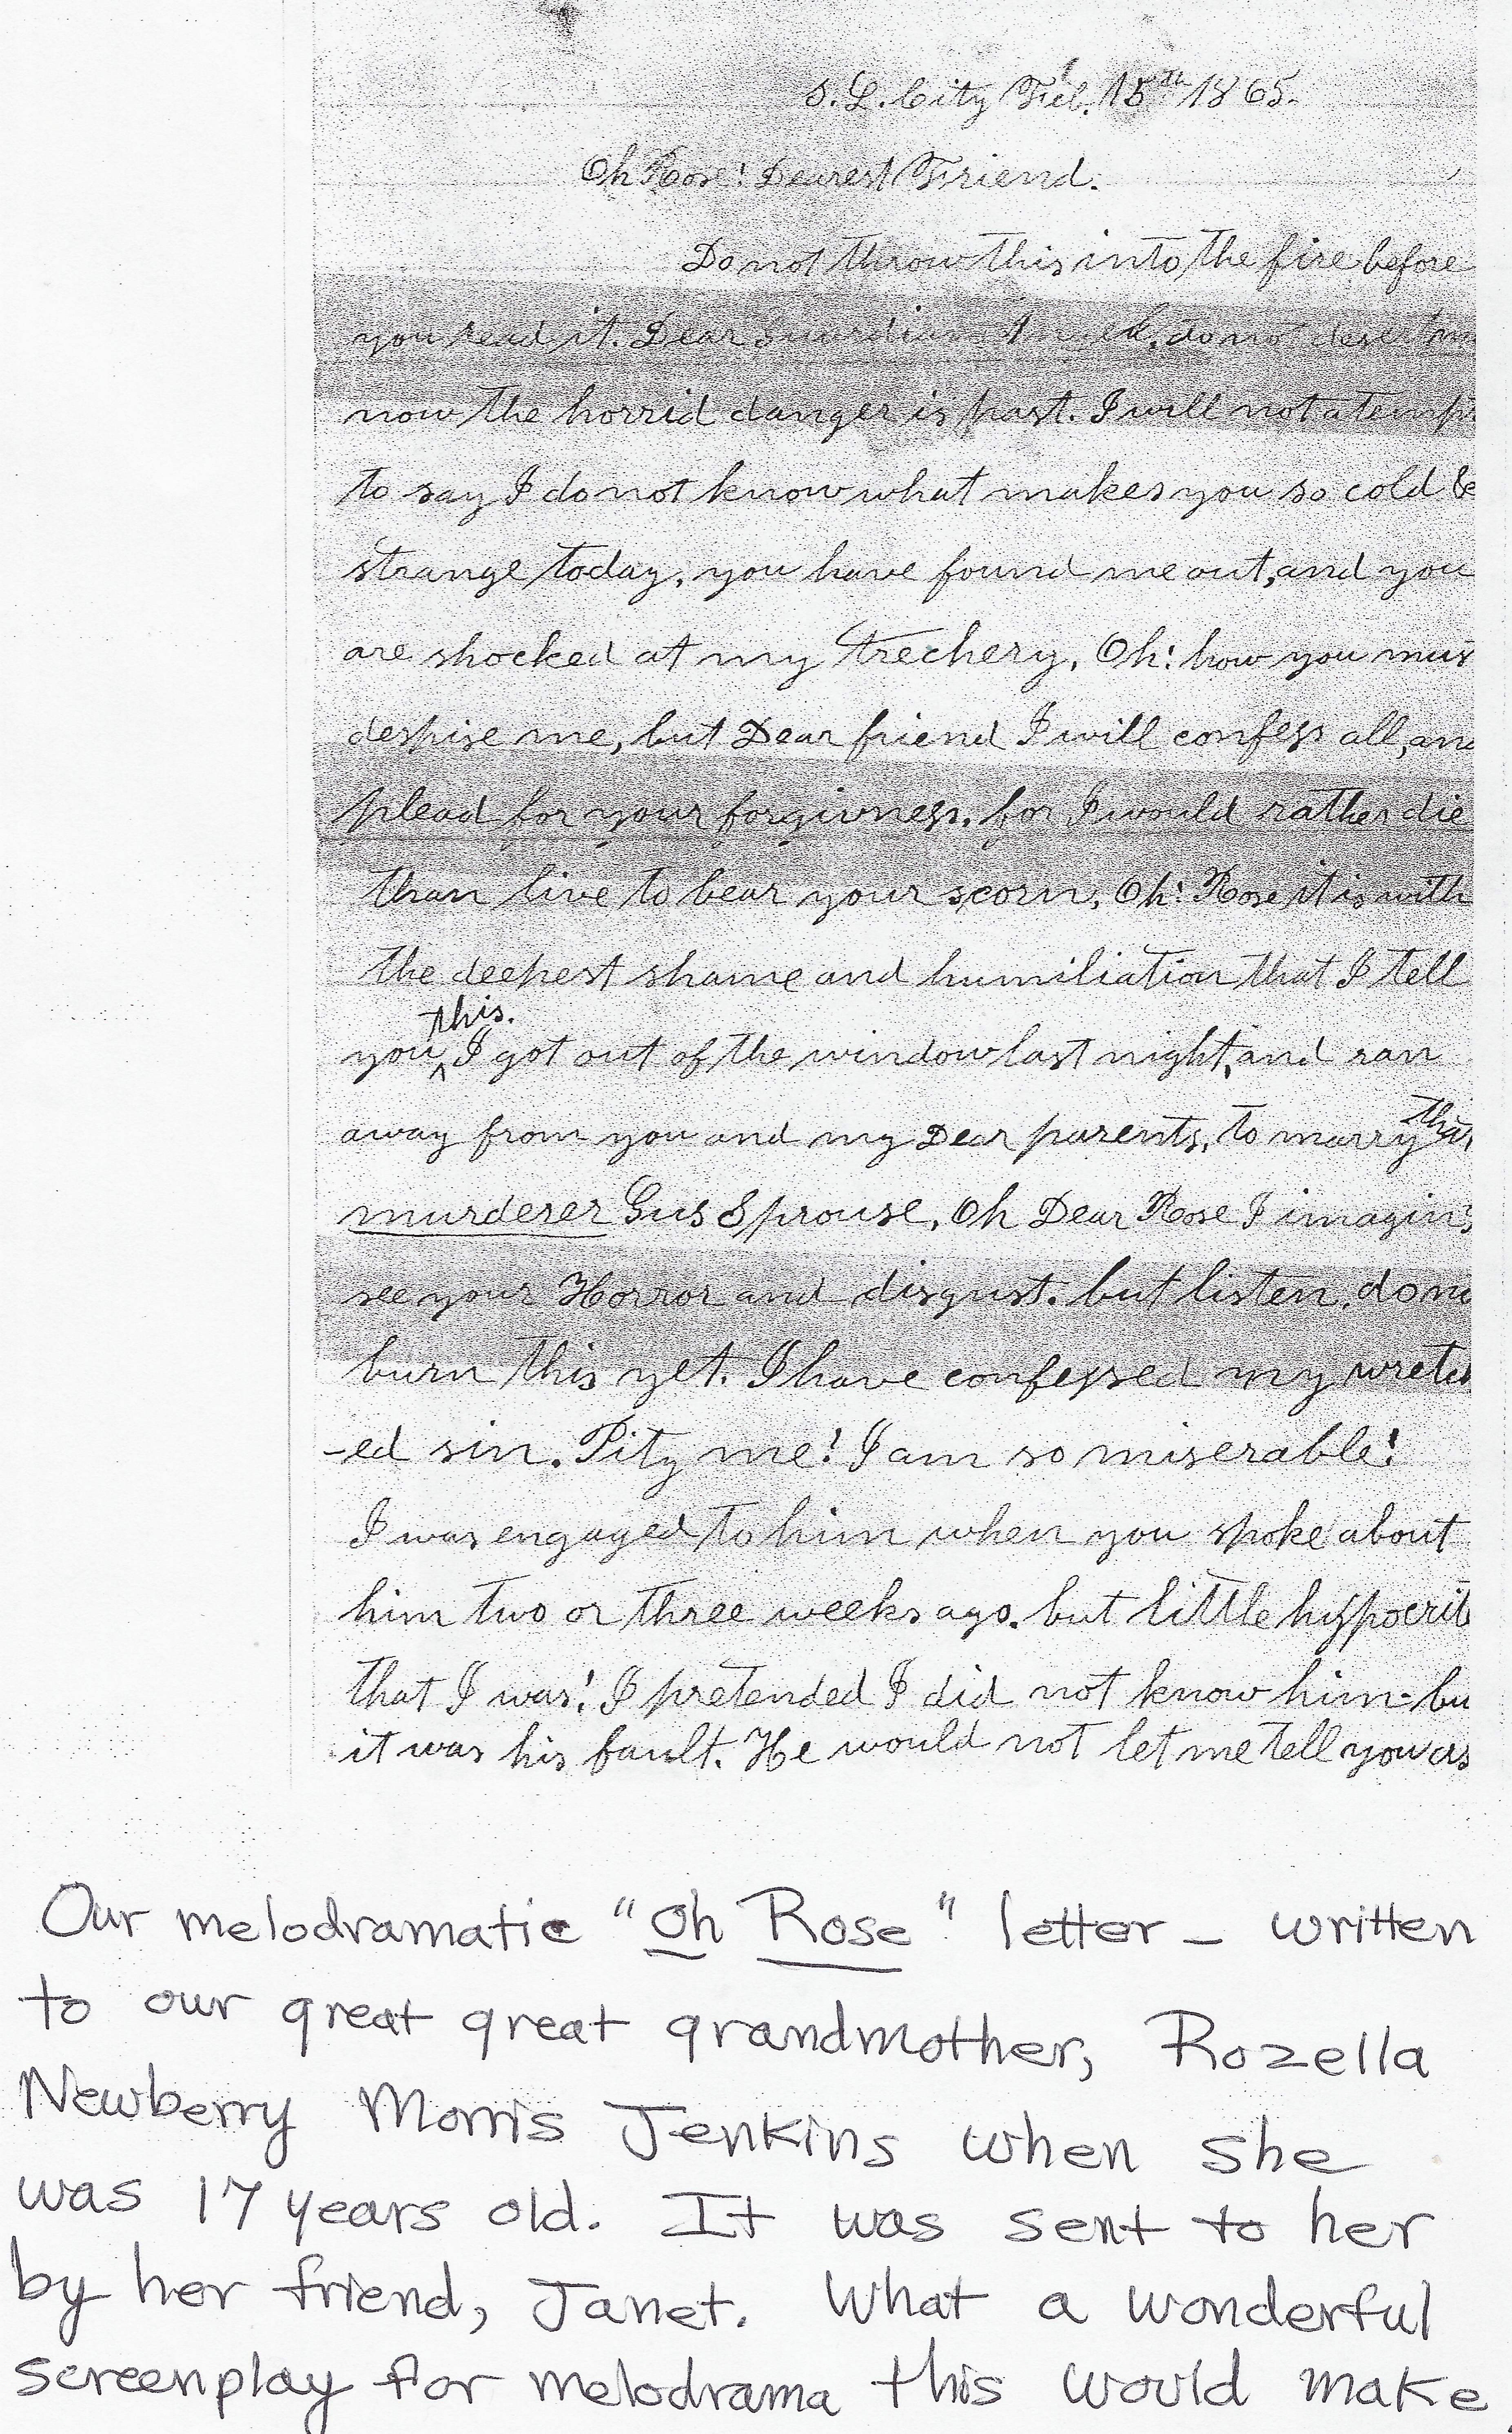 S. L. City Feb. 15th 1865.
Oh Rose! Dearest Friend.
Do not throw this into the fire before
you read it. Dear Guardian Angel, do not desert
now the horrid danger is past. I will not atemp
to say I do not know what makes you so cold &
strange today, you have found me out, and you
are shocked at my trechery. Oh! how you mus
despise me, but Dear friend I will confess all, and
plead for your forgivness, for I would rather die
than live to bear your scorn, Oh! Rose it is with
the deepest shame and humiliation that I tell
this.
you ^ I got out of the window last night, and ran
away from you and my Dear parents, to marry
murderer Gus Sprouse, Oh Dear Rose I imagin
see your Horror and disgust. but listen, do no
burn this yet. I have confessed my wretch
-ed sin. Pity me! I am so miserable!
I was engaged to him when you spoke about
him two or three weeks ago. but little hypocrit
that I was! I pretended I did not know him - bu
it was his fault. He would not let me tell you as
Our melodramatic "Oh Rose" letter - written
to our great great grandmother, Rozella
Newberry Morris Jenkins when she
was 17 years old. It was sent to her
by her friend, Janet. What a wonderful
screenplay for melodrama this would make